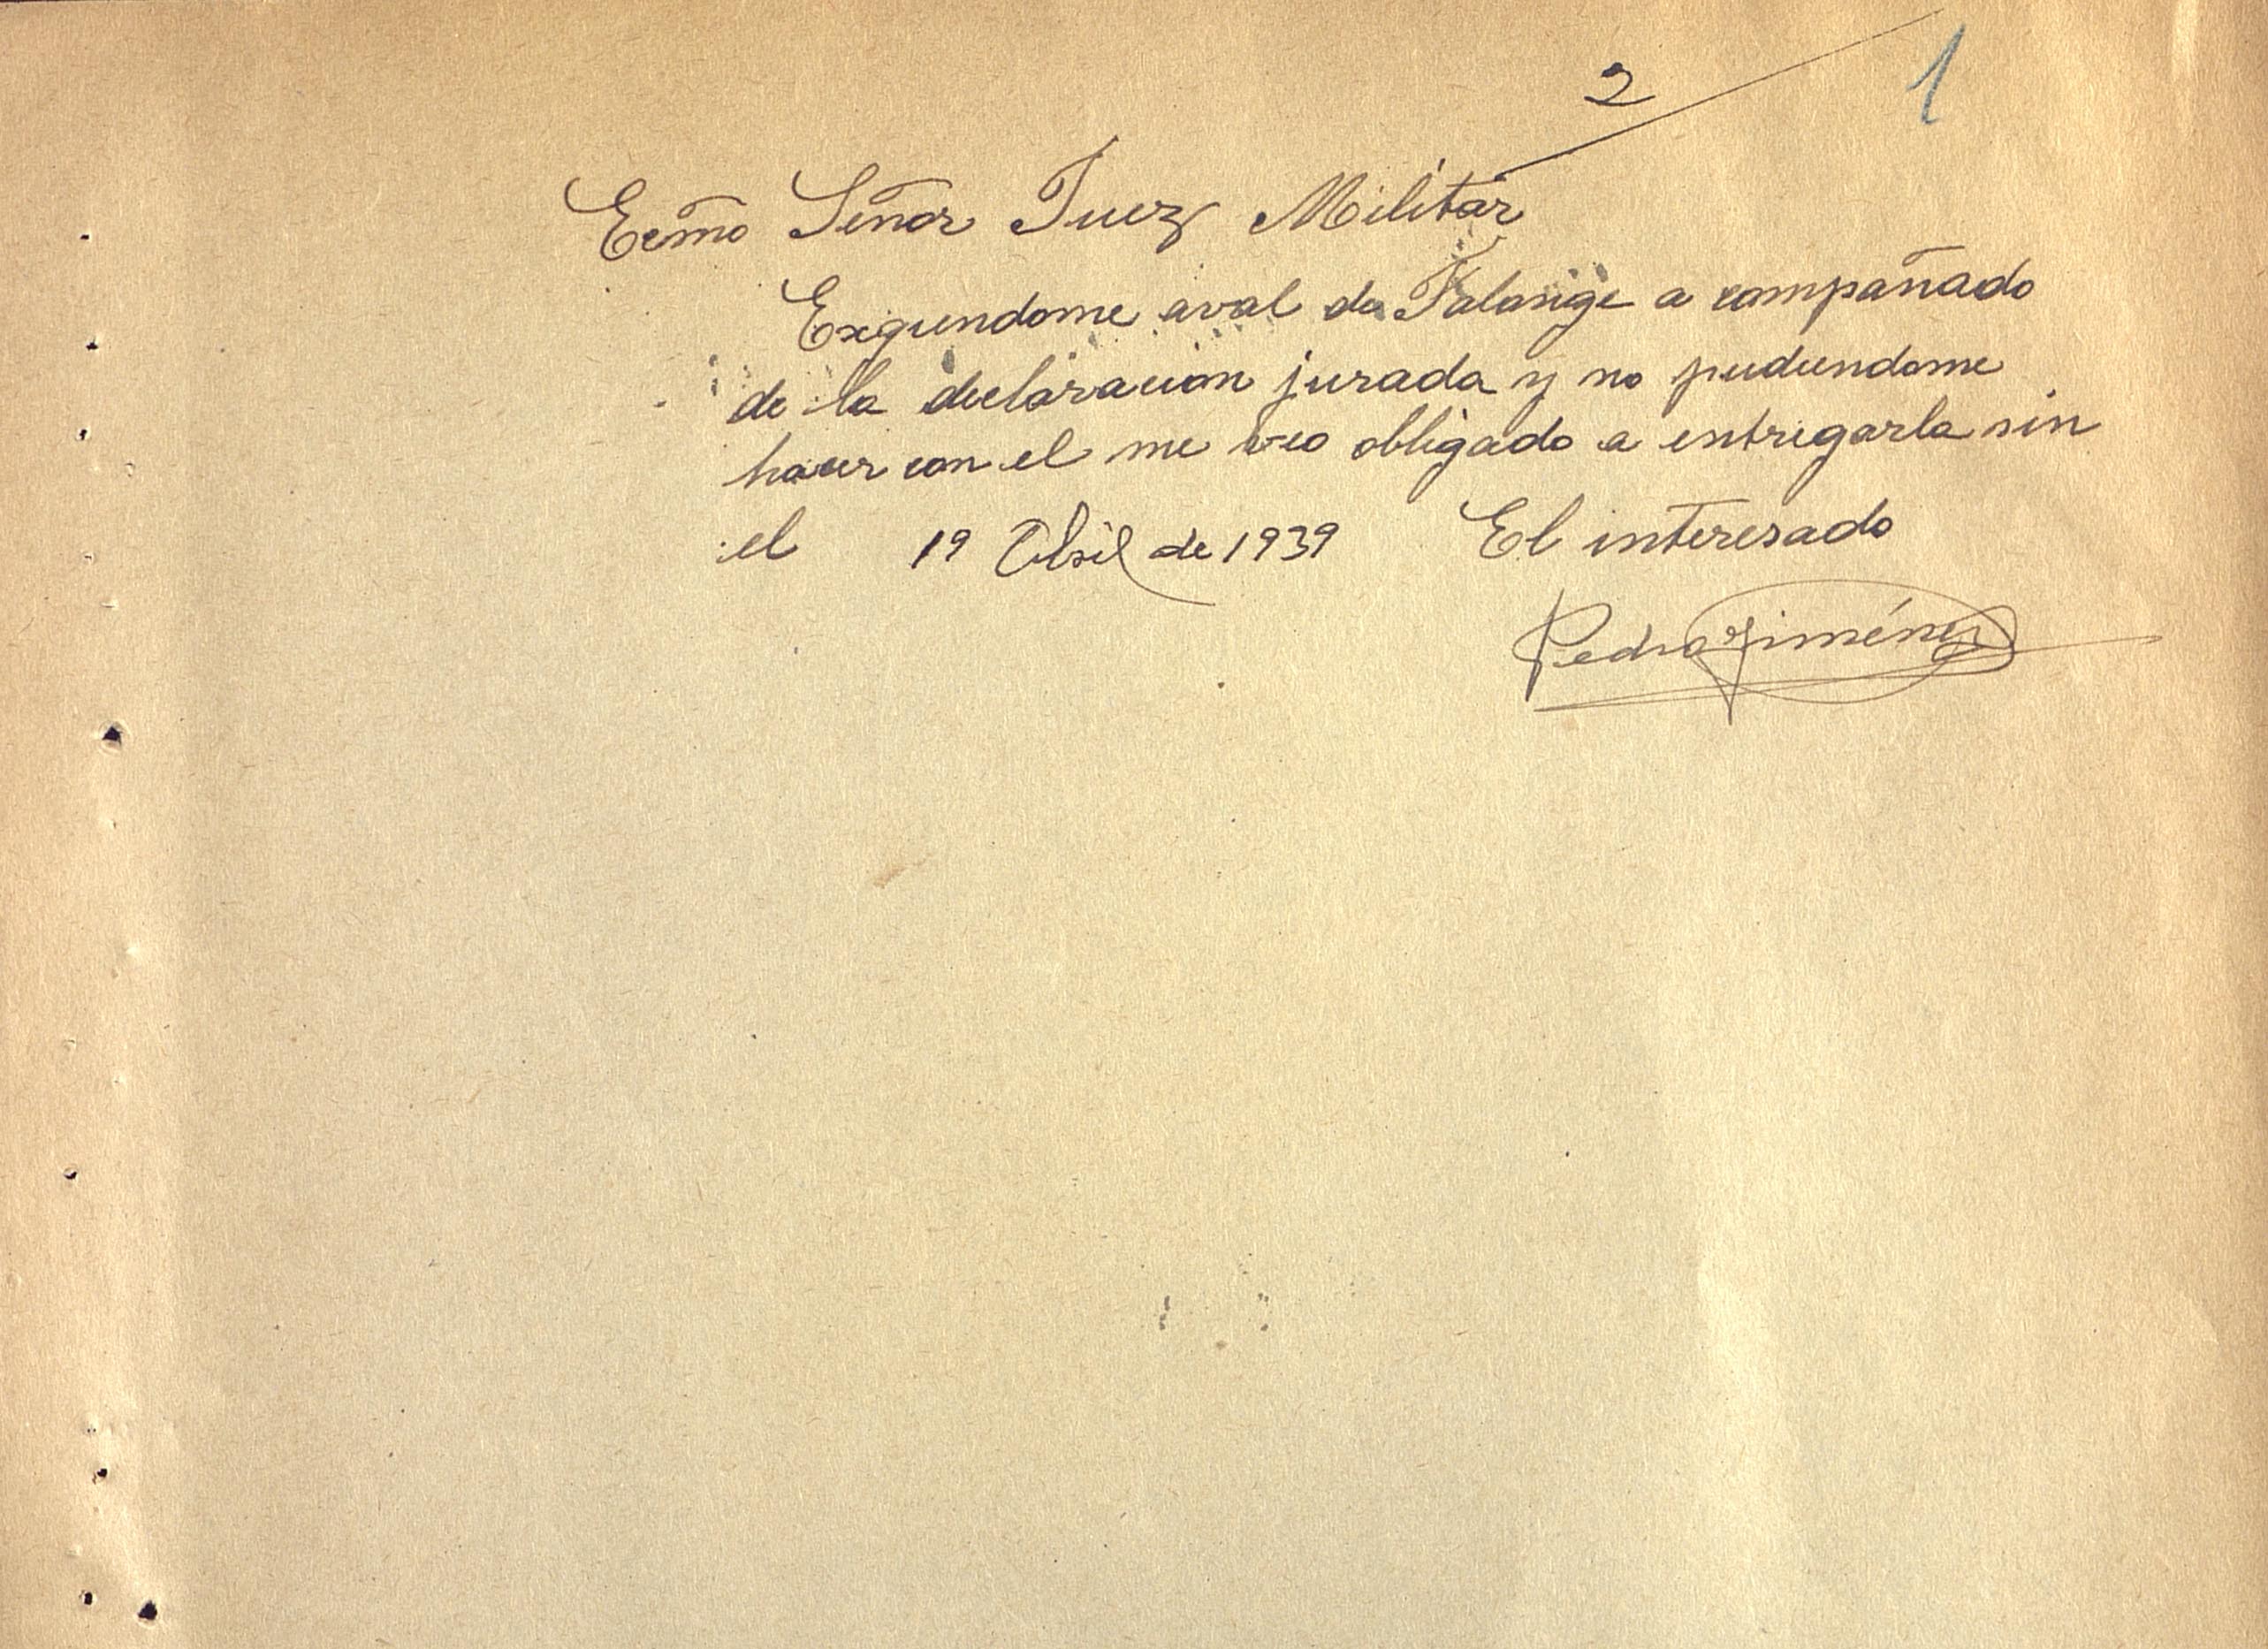 2
1
Ecmo Señor Juez Militar
Exigiendome aval de Falange a compañado
de la declaracion jurada y no pudiendome
hacer con el me veo obligado a entregarla sin
el 19 Abril de 1939 El interesado
Pedro Jiménez